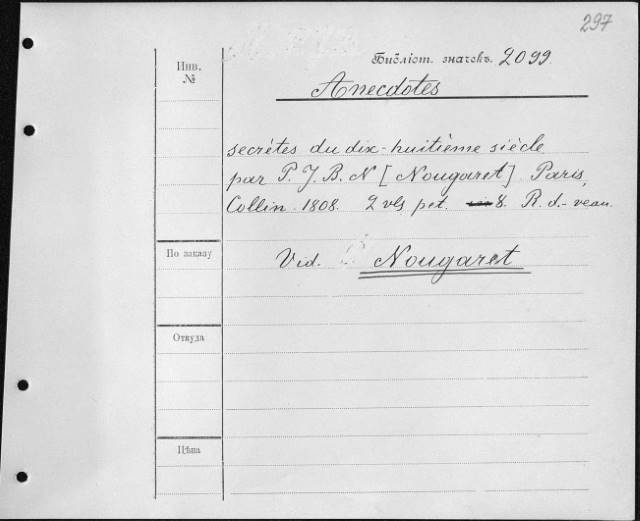 297
Инв. №
Библіот. значекъ. 2099.
Anecdotes
secrètes du dix-huitième siècle
par P. J. B. N [Nougaret] Paris,
Collin. 1808. 2 vls pet. 8. R. d.-veau.
По заказу
Vid. Nougaret
Откуда
Цѣна